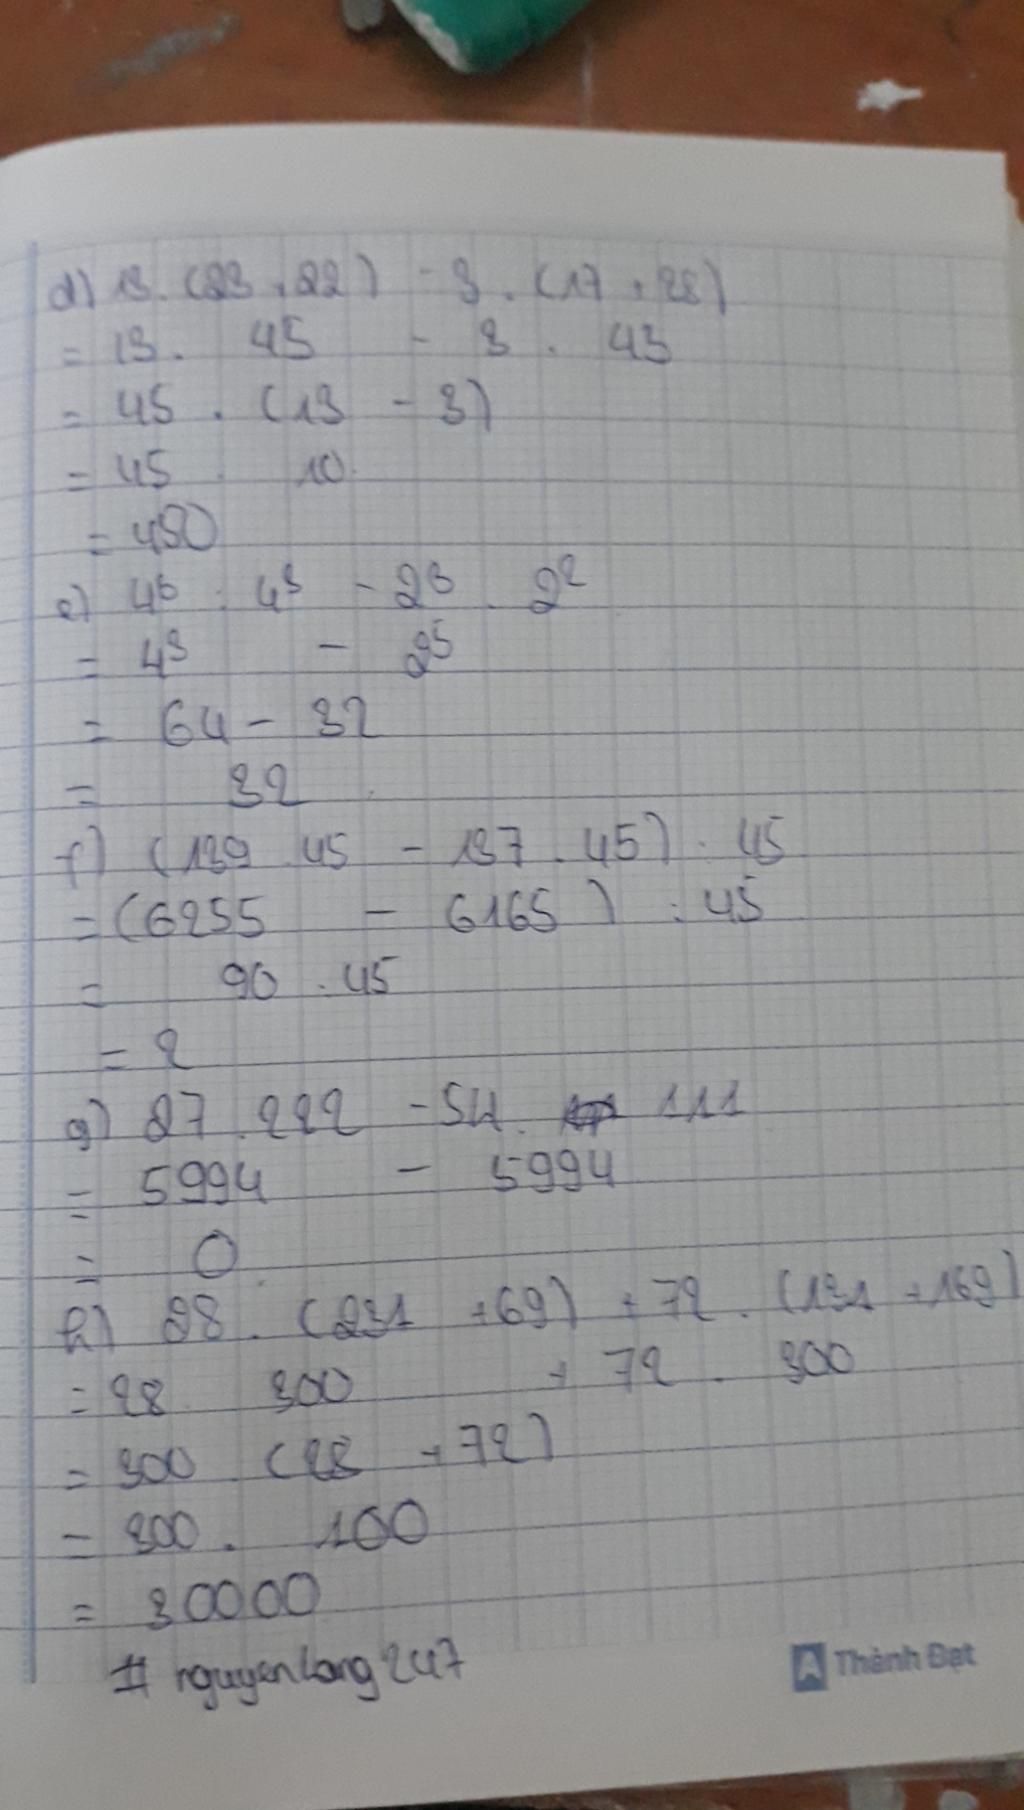 d) 13. (23 + 22) - 3. (17 + 28)
= 13. 45 - 3. 43
= 45. (13 - 3)
= 45 10
= 450
e) 4⁶ : 4³ - 2³. 2²
= 4³ - 2⁵
= 64 - 32
= 32
f) (139. 45 - 137. 45) : 45
= (6255 - 6165) : 45
= 90 : 45
= 2
g) 27. 222 - 54. 111
= 5994 - 5994
= 0
h) 28. (231 + 69) + 72. (131 + 169)
= 28 300 + 72. 300
= 300 (28 + 72)
= 300. 100
= 30000
# nguyenlong247
Thành Đạt